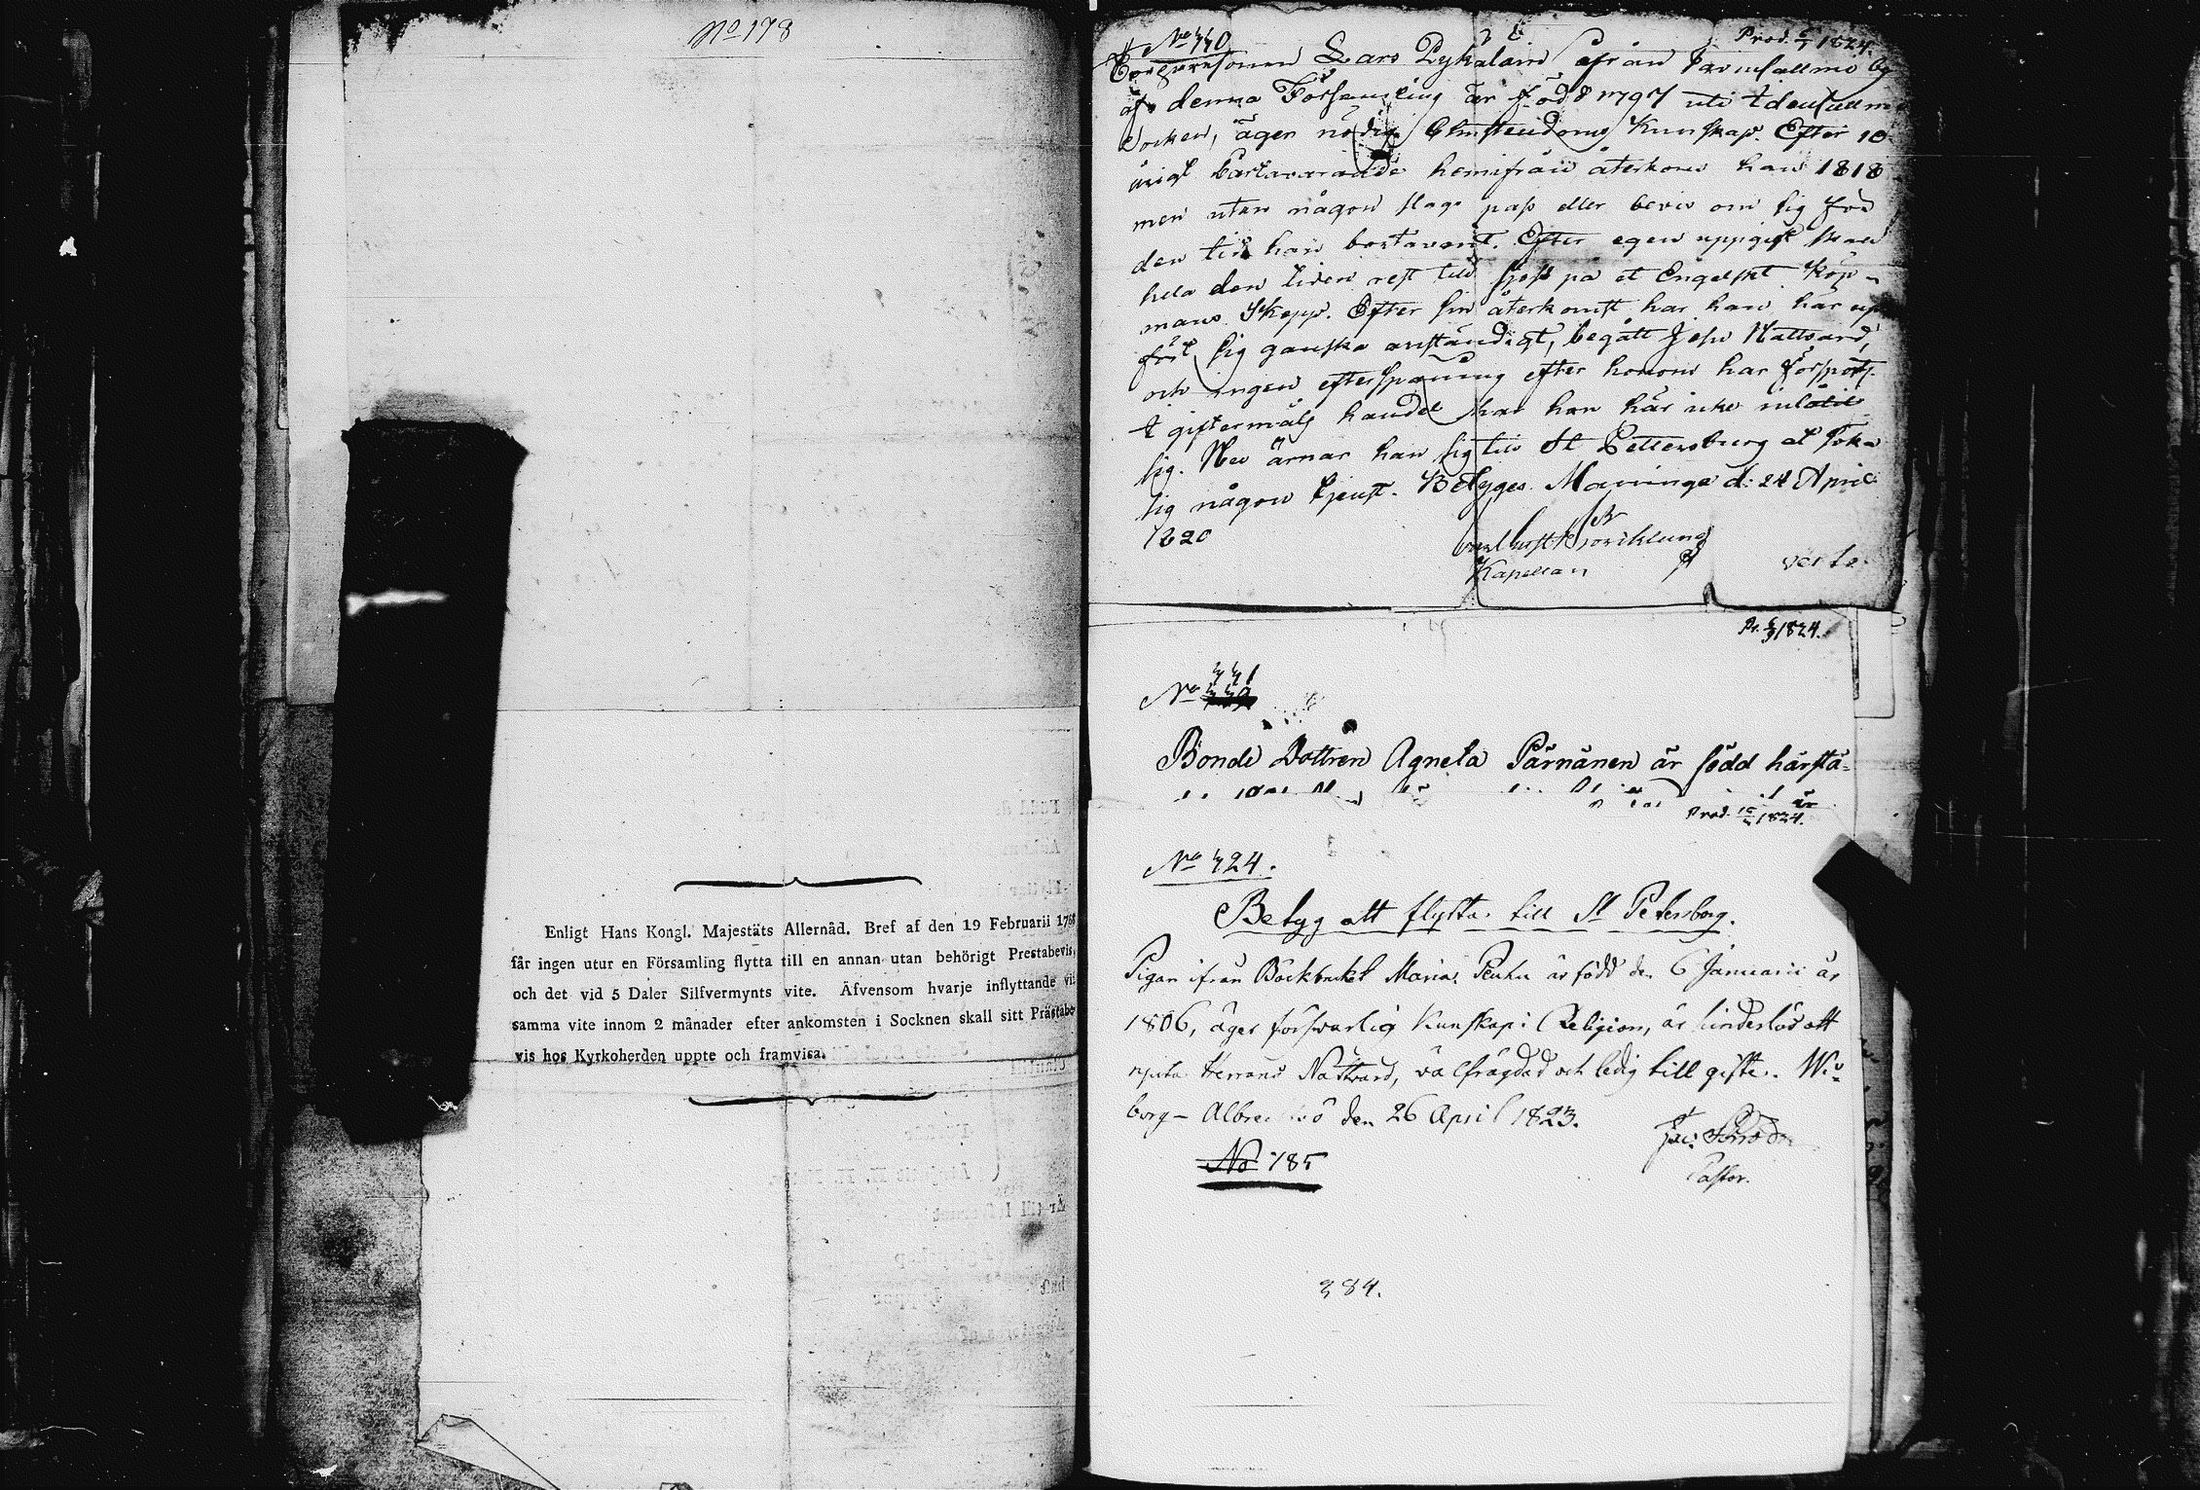 No 178
Enligt Hans Kongl. Majestäts Allernåd. Bref af den 19 Februarii 1768
får ingen utur en Församling flytta till en annan utan behörigt Prestabevis,
och det vid 5 Daler Silfvermynts vite. Äfvensom hvarje inflyttande vid
samma vite innom 2 månader efter ankomsten i Socknen skall sitt Prästabe-
vis hos Kyrkoherden uppte och framvisa.
No 440
Prod. 1824.
Lars ifrån
af denna Församling är född 1797 uti
Socken, äger nödig Christendoms Kunskap. Efter 10
årigt bortavarande hemifrån återkom han 1818
men utan någon slags pass eller bevis om sig för
den tid han bortavarit. Efter egen uppgift skall
hela den tiden rest till sjöss på et Engelskt Köp-
mans Skepp. Efter sin återkomst har han här up
fört sig ganska anständigt, begått Hs Hr Nattvard,
och ingen efterspaning efter honom har försports.
I giftermåls handel har han här icke inlåtit
sig. Nu ärnar han sig till St Pettersburg at söka
sig någon tjenst. Betyges Maninga d: 24 April
1820
Kapellan
verte.
Pr. 1824.
No 441
Bonde Dottren Agneta Pärnänen är född härstä-
Prod. 1824.
No 424.
Betyg att flytta till St Petersborg.
Pigan ifrån Maria är född den 6 Januarii år
1806, äger försvarlig Kunskap i Religion, är hinderlös att
njuta Herrans Nattvard, välfrägdad och ledig till gifte. Wi-
borg - den 26 April 1823.
Pastor.
No 185
384.